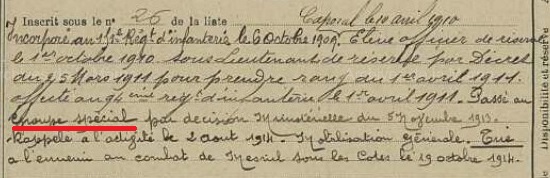 Inscrit sous le n° 26 de la liste Caporal le 10 avril 1910
Incorporé au Régt d'infanterie le 6 Octobre 1909. Elève officier de réserve
le 1er octobre 1910. Sous Lieutenant de réserve par Décret
du 25 Mars 1911 pour prendre rang du 1er avril 1911.
affecté au 94ème régt d'infanterie le 1er avril 1911. Passé au
groupe spécial par décision Ministérielle du 5 Novembre 1913.
Rappelé à l'activité le 2 aout 1914. Mobilisation générale. Tué
à l'ennemi au combat de Mesnil sous les Cotes le 19 octobre 1914.
Disponibilité et réserve